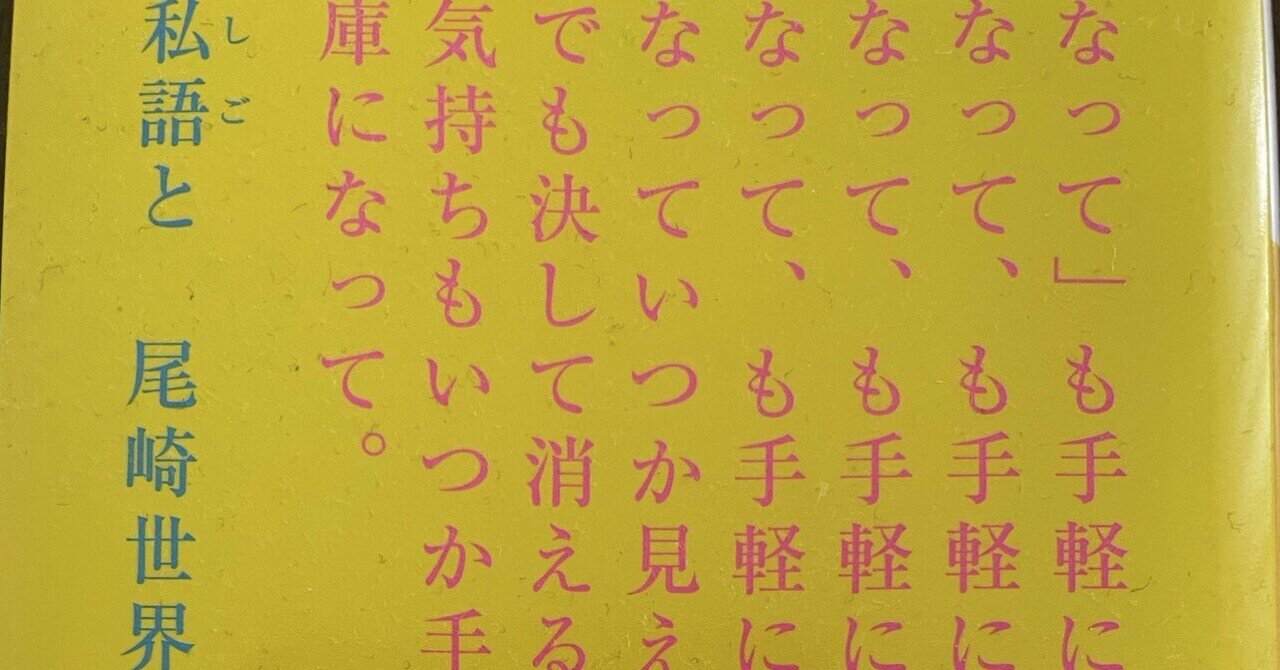 なって」も手軽に
なって、も手軽に
なって、も手軽に
なって、も手軽に
なっていつか見え
でも決して消える
気持ちもいつか手
庫になって。
しご
私語と 尾崎世界